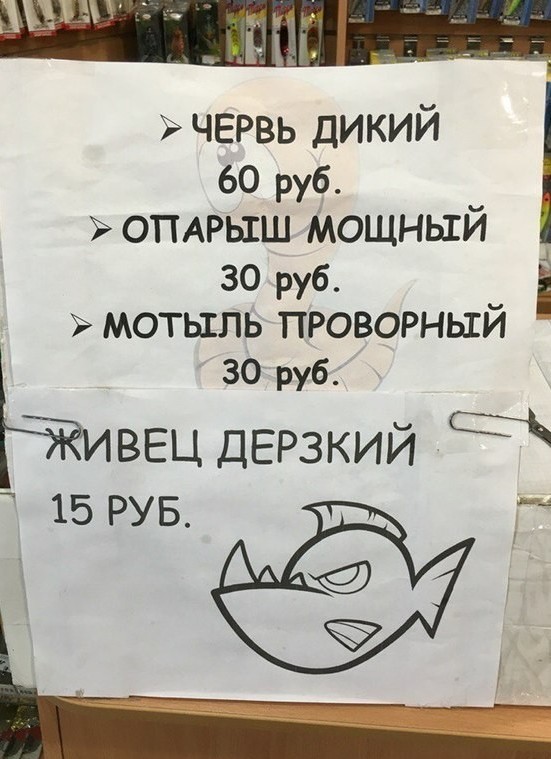 ➢ ЧЕРВЬ ДИКИЙ
60 руб.
➢ ОПАРЫШ МОЩНЫЙ
30 руб.
➢ МОТЫЛЬ ПРОВОРНЫЙ
30 руб.
ЖИВЕЦ ДЕРЗКИЙ
15 РУБ.